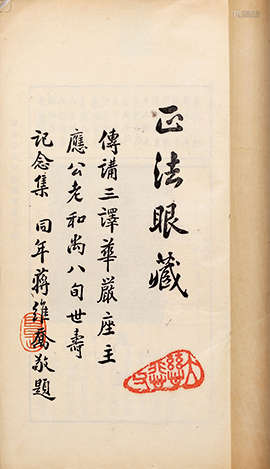 正法眼藏
傳講三譯華嚴座主
應公老和尚八旬世壽
記念集 同年蔣維喬敬題